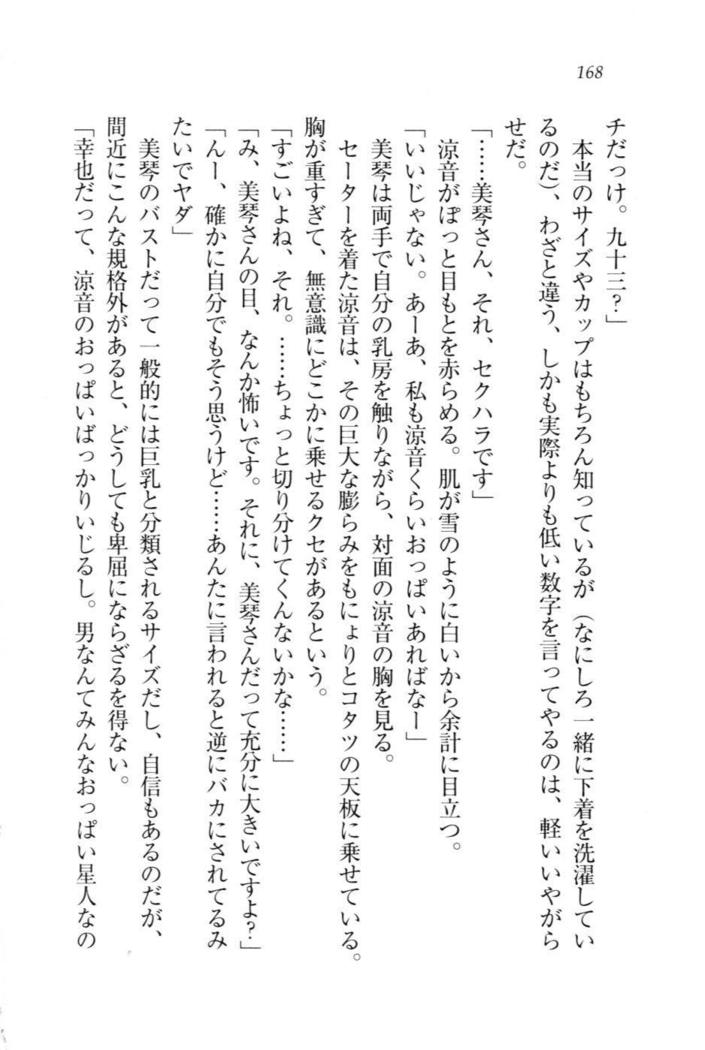 168
チだっけ。九十三？」
　本当のサイズやカップはもちろん知っているが（なにしろ一緒に下着を洗濯してい
るのだ）、わざと違う、しかも実際よりも低い数字を言ってやるのは、軽いいやがら
せだ。
「……美琴さん、それ、セクハラです」
　涼音がぽっと目もとを赤らめる。肌が雪のように白いから余計に目立つ。
「いいじゃない。あーあ、私も涼音くらいおっぱいあればなー」
　美琴は両手で自分の乳房を触りながら、対面の涼音の胸を見る。
　セーターを着た涼音は、その巨大な膨らみをもにょりとコタツの天板に乗せている。
胸が重すぎて、無意識にどこかに乗せるクセがあるという。
「すごいよね、それ。……ちょっと切り分けてくんないかな……」
「み、美琴さんの目、なんか怖いです。それに、美琴さんだって充分に大きいですよ？」
「んー、確かに自分でもそう思うけど……あんたに言われると逆にバカにされてるみ
たいでヤダ」
　美琴のバストだって一般的には巨乳と分類されるサイズだし、自信もあるのだが、
間近にこんな規格外があると、どうしても卑屈にならざるを得ない。
「幸也だって、涼音のおっぱいばっかりいじるし。男なんてみんなおっぱい星人なの